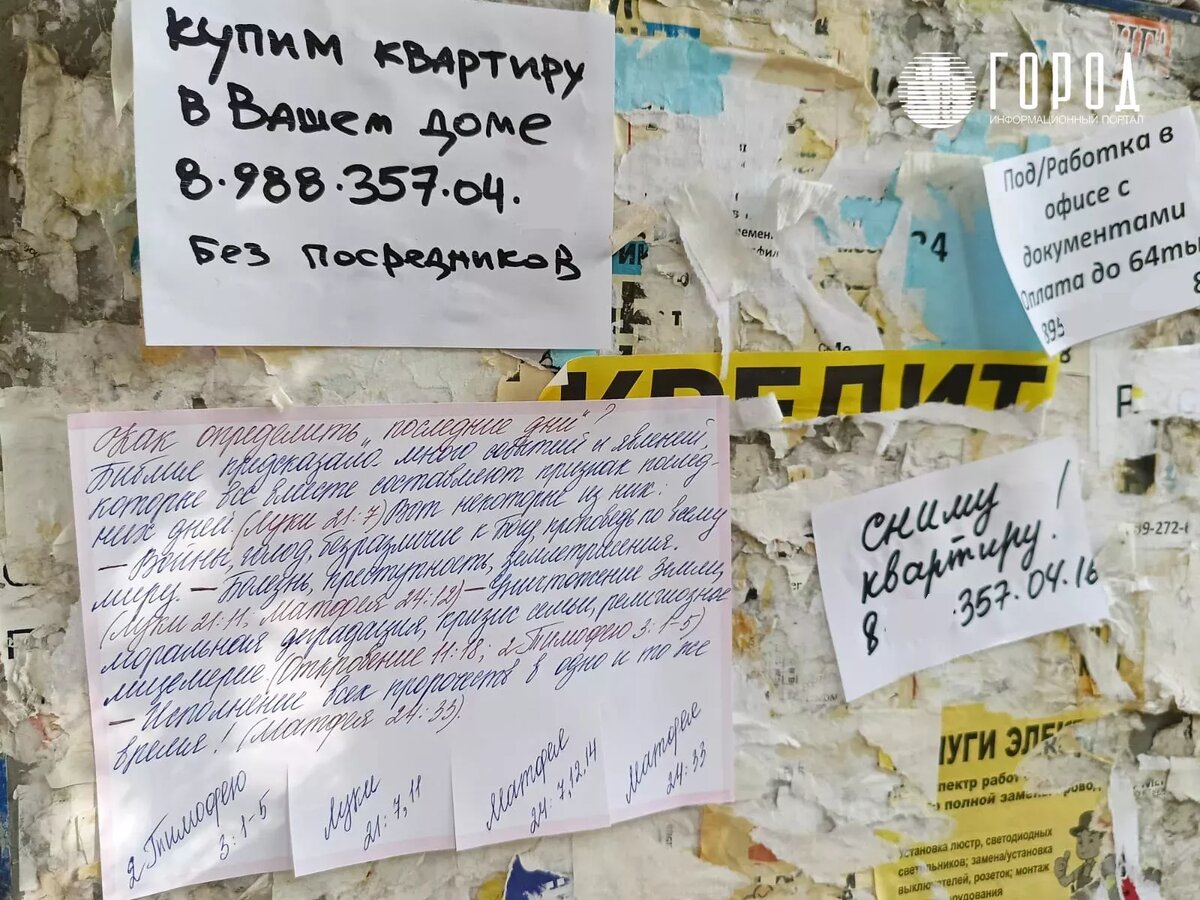 купим квартиру
в Вашем доме
8.988.357.04.
Без посредников
ГОРОД
ИНФОРМАЦИОННЫЙ ПОРТАЛ
Под/Работка в
офисе с
документами
Оплата до 64ты
895
КРЕДИТ
Как определить „последние дни"?
Библия предсказала много событий и явлений,
которые все вместе составляют признак послед-
них дней (Луки 21:7) Вот некоторые из них:
— Войны, голод, безразличие к Богу, проповедь по всему
миру. — Болезнь, преступность, землетрясения.
(Луки 21:11, Матфея 24:12) — Уничтожение Земли,
моральная деградация, кризис семьи, религиозное
лицемерие (Откровение 11:18; 2 Тимофею 3:1-5)
— Исполнение всех пророчеств в одно и то же
время! (Матфея 24:33).
2 Тимофею
3:1-5
Луки
21:7,11
Матфея
24:7,12,14
Матфея
24:33
сниму
квартиру!
8 .357.04.16
09-272-
УГИ ЭЛЕК
пектр работ
полной замен
становка люстр, светодиодных
светильников; замена/установка
выключателей, розеток; монтаж
рудования